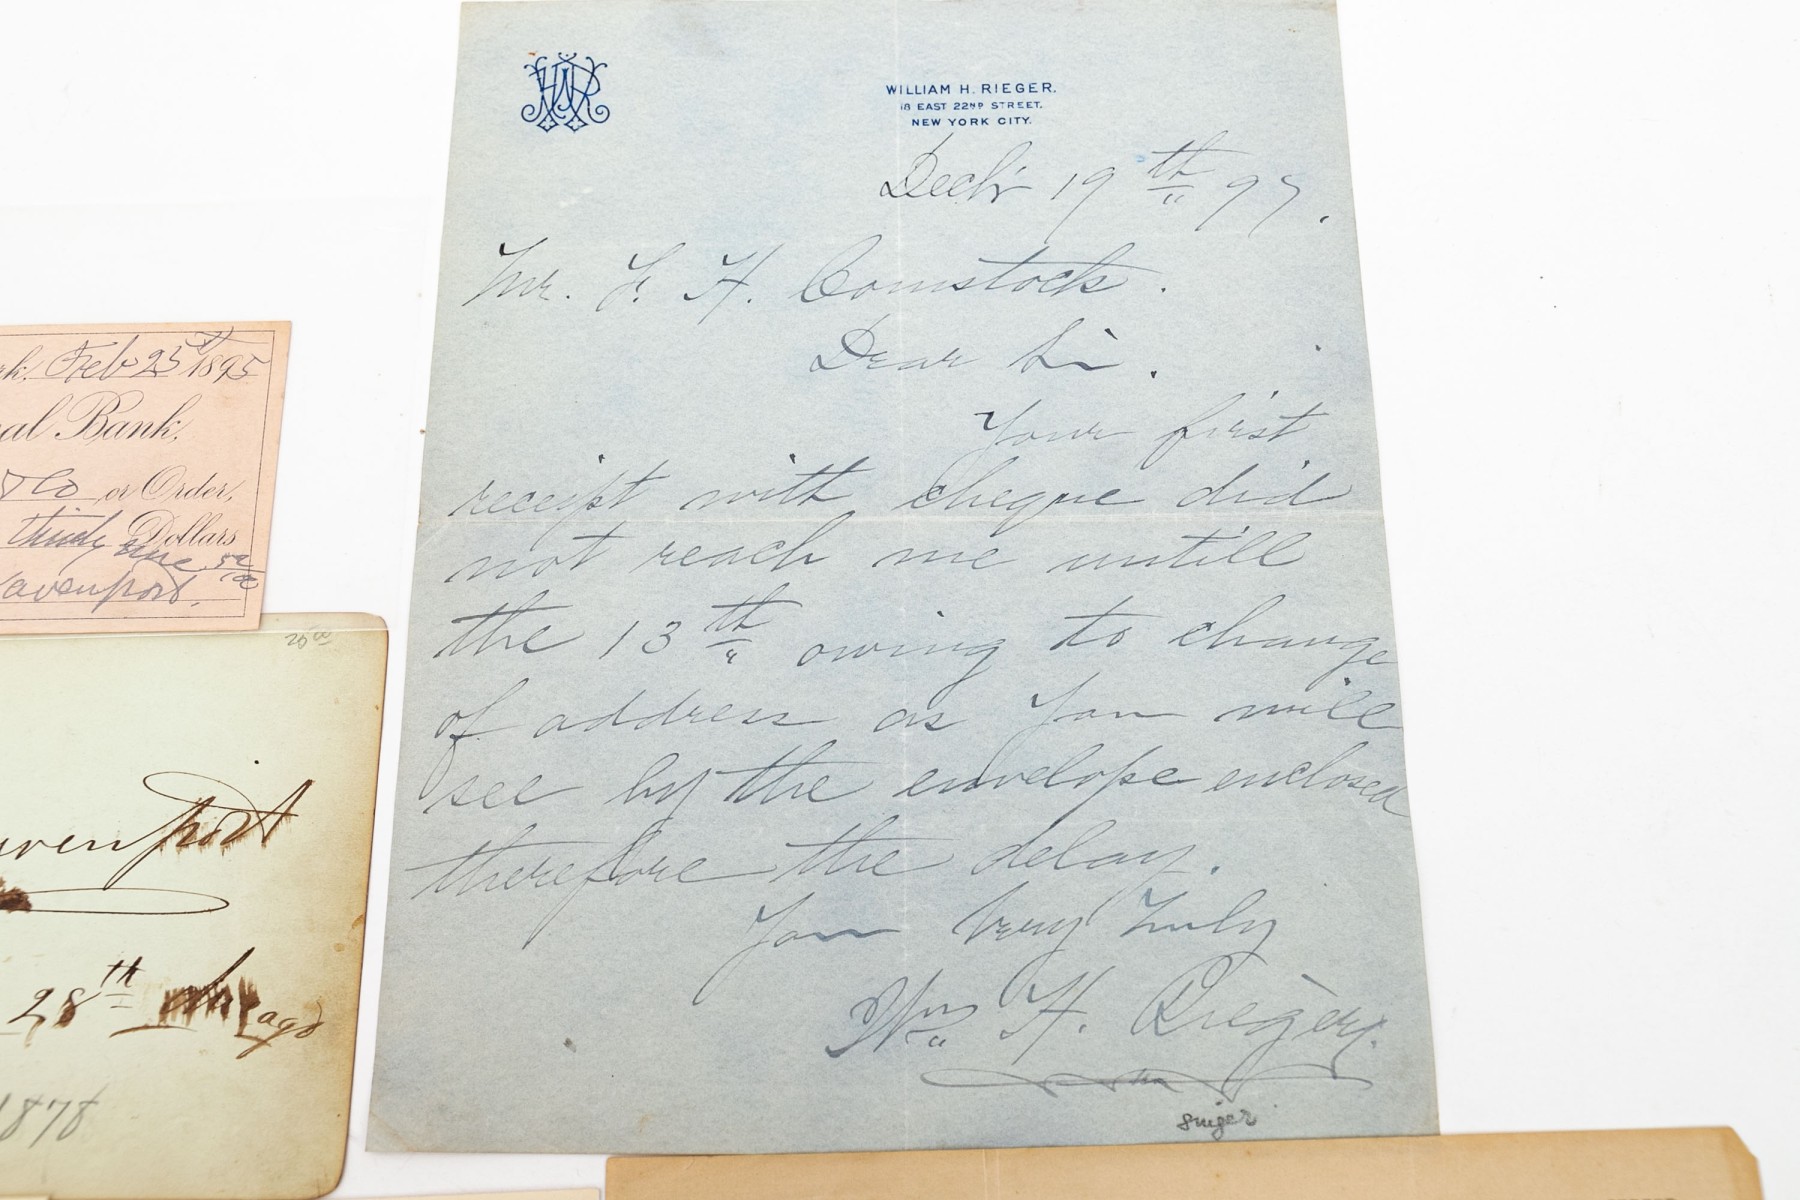 WHR
WILLIAM H. RIEGER.
18 EAST 22ND STREET.
NEW YORK CITY.
Decbr 19th 97.
Mr. F. H. Comstock.
Dear Sir.
Your first
receipt with cheque did
not reach me untill
the 13th owing to change
of address as you will
see by the envelope enclosed
therefore the delay.
Your Very truly
Wm H. Rieger.
singer
rk, Feb 25th 1895
al Bank.
or Order,
thirty one 50/100 Dollars
avenport.
25 00
avenport
28th Chicago
1878